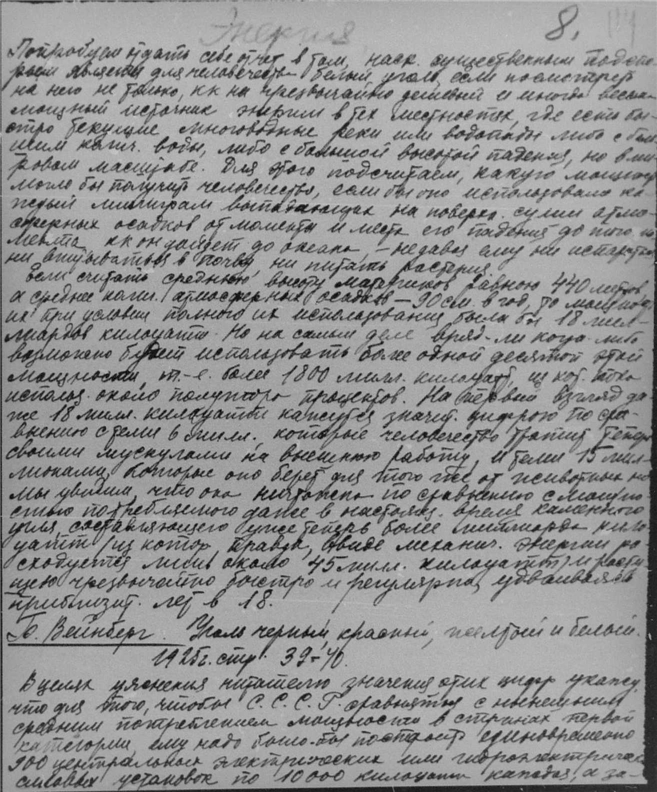 Энергия 8.
Попробуем отдать себе отчет в том, наск. существенным подспо-
рьем является для человечества белый уголь, если посмотреть
на него не только, кк на чрезвычайно дешевый и иногда весьма
мощный источник энергии в тех местностях, где есть бы-
стро текущие многоводные реки или водопады либо с боль
шим колич. воды, либо с большой высотой падения, но в ми-
ровом масштабе. Для этого подсчитаем, какую мощность
могло бы получить человечество, если бы оно использовало ка
ждый миллиграм выпадающих на поверхн. суши атмо-
сферных осадков от момента и места его падения до того, мо
мента, кк он дойдет до океана, – не давая ему ни испаряться
ни впитываться в почву ни питать растения.
Если считать среднюю высоту материков равною 440 метров
а среднее колич. атмосферных осадков – 90 см. в год, то мощность
их при условии полного их использования была бы 18 мил-
лиардов киловатт. Но на самом деле вряд-ли когда-либо
возможно будет использовать более одной десятой этой
мощности, т.-е. более 1800 милл. киловатт, из кот. пока
использ. около полутора процентов. На первый взгляд да
же 18 милл. киловатт кажутся значит. цифрою по сра-
внению с теми 6 милл., которые человечество тратит теперь
своими мускулами на внешнюю работу, и теми 15 мил-
лионами, которые оно берет для того же от животных но
мы увидим, что она ничтожна по сравнению с мощно-
стью потребляемого даже в настоящ. время каменного
угля, составляющего уже теперь более миллиарда кило
ватт (из котор., правда, в виде механич. энергии ра
сходуется лишь около 45 милл. киловатт) и расту
щею чрезвычайно быстро и регулярно, удваиваясь
приблизит. лет в 18.
Б. Вейнберг. Уголь черный красный, желтый и белый.
1925г. стр. 39-40.
В целях уяснения читателю значения этих цифр укажу
что для того, чтобы С.С.С.Р. сравнялся с нынешним
средним потреблением мощности в странах первой
категории, ему надо было-бы построить единовременно
900 центральных электрических или гидроэлектрическ
силовых установок по 10000 киловатт каждая, а за-